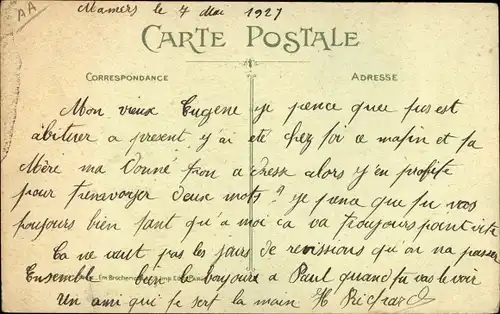 AA
Mamers le 7 Mai 1927
CARTE POSTALE
CORRESPONDANCE
ADRESSE
Mon vieux Eugene je pence quee tus est
abituer a present y'ai ete chez toi ce matin et ta
Mère ma Donné ton adresse alors y'en profite
pour tenvoyer deux mots je pence que tu vas
toujours bien tant qu'a moi ca va troujours
Ca ne vaut pas les jours de revissions qu'on na passer
Ensemble bien le bonjours a Paul quand tu vas le voir
Un ami qui te sert la main H